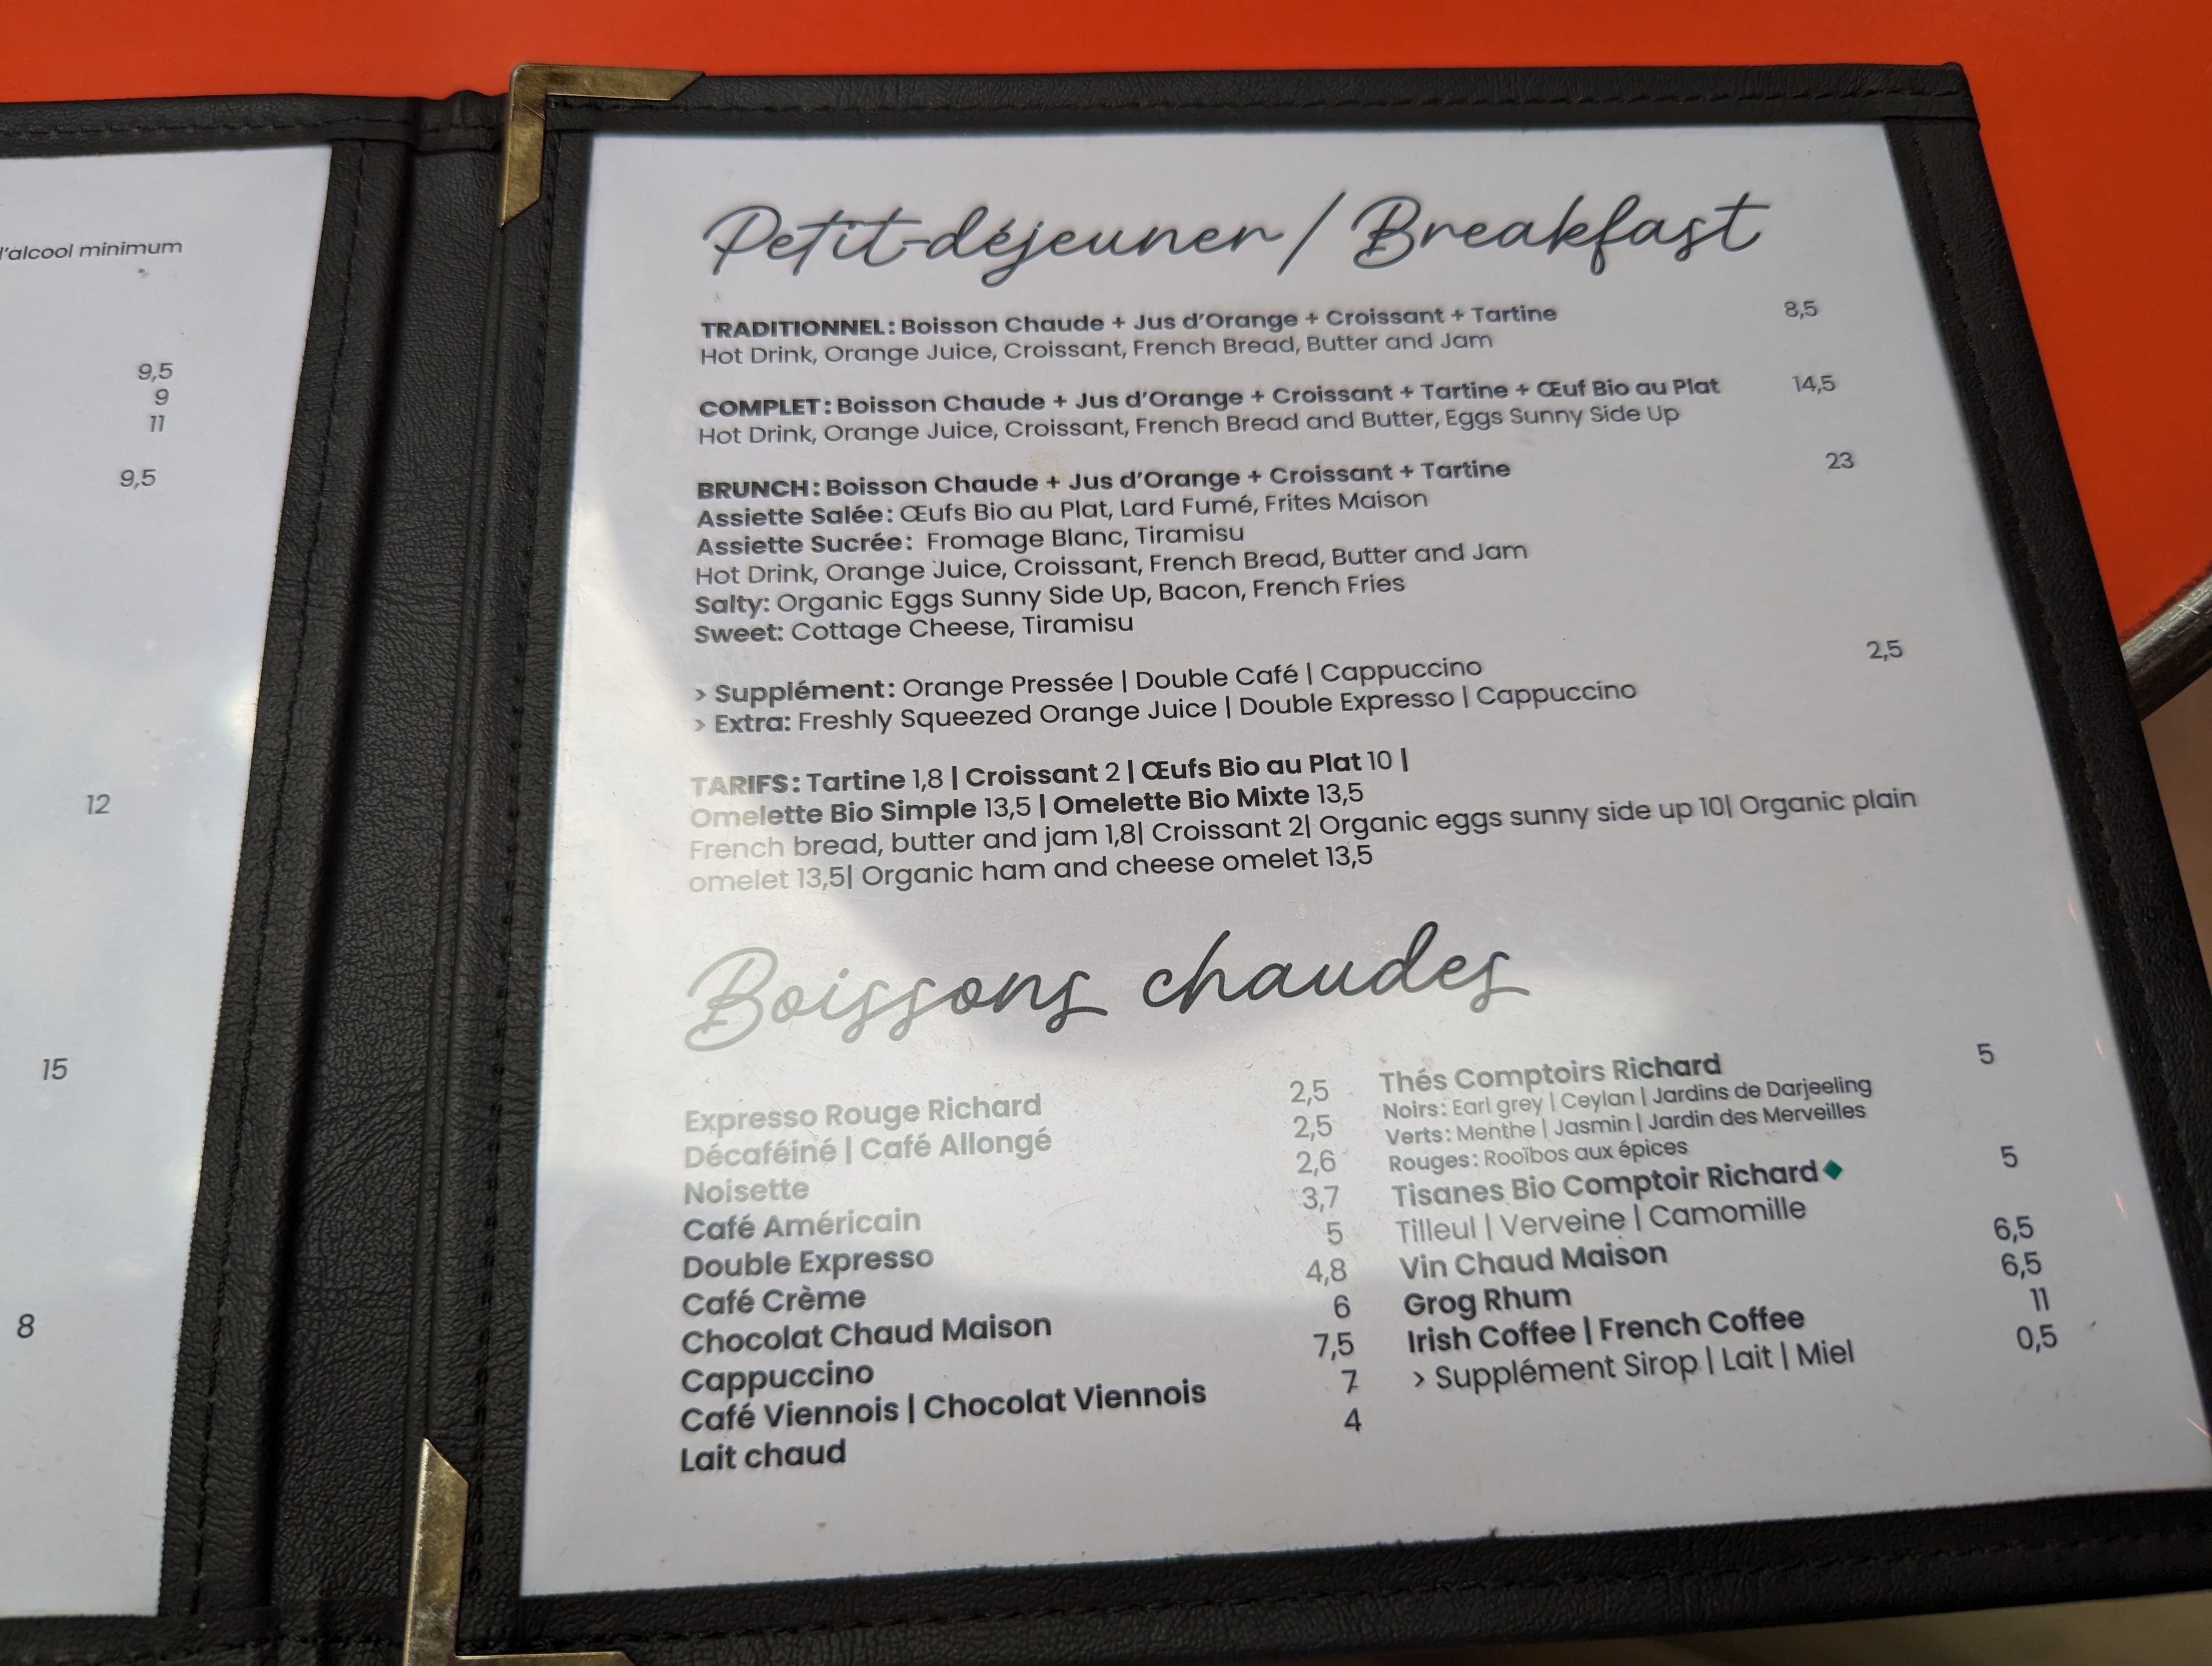 l'alcool minimum
9,5
9
11
9,5
12
15
8
Petit-déjeuner / Breakfast
TRADITIONNEL: Boisson Chaude + Jus d'Orange + Croissant + Tartine 8,5
Hot Drink, Orange Juice, Croissant, French Bread, Butter and Jam
COMPLET: Boisson Chaude + Jus d'Orange + Croissant + Tartine + Œuf Bio au Plat 14,5
Hot Drink, Orange Juice, Croissant, French Bread and Butter, Eggs Sunny Side Up
BRUNCH: Boisson Chaude + Jus d'Orange + Croissant + Tartine 23
Assiette Salée: Œufs Bio au Plat, Lard Fumé, Frites Maison
Assiette Sucrée: Fromage Blanc, Tiramisu
Hot Drink, Orange Juice, Croissant, French Bread, Butter and Jam
Salty: Organic Eggs Sunny Side Up, Bacon, French Fries
Sweet: Cottage Cheese, Tiramisu
> Supplément: Orange Pressée | Double Café | Cappuccino 2,5
> Extra: Freshly Squeezed Orange Juice | Double Expresso | Cappuccino
TARIFS: Tartine 1,8 | Croissant 2 | Œufs Bio au Plat 10 |
Omelette Bio Simple 13,5 | Omelette Bio Mixte 13,5
French bread, butter and jam 1,8| Croissant 2| Organic eggs sunny side up 10| Organic plain
omelet 13,5| Organic ham and cheese omelet 13,5
Boissons chaudes
Expresso Rouge Richard 2,5
Décaféiné | Café Allongé 2,5
Noisette 2,6
Café Américain 3,7
Double Expresso 5
Café Crème 4,8
Chocolat Chaud Maison 6
Cappuccino 7,5
Café Viennois | Chocolat Viennois 7
Lait chaud 4
Thés Comptoirs Richard 5
Noirs: Earl grey | Ceylan | Jardins de Darjeeling
Verts: Menthe | Jasmin | Jardin des Merveilles
Rouges: Rooïbos aux épices
Tisanes Bio Comptoir Richard 5
Tilleul | Verveine | Camomille
Vin Chaud Maison 6,5
Grog Rhum 6,5
Irish Coffee | French Coffee 11
> Supplément Sirop | Lait | Miel 0,5